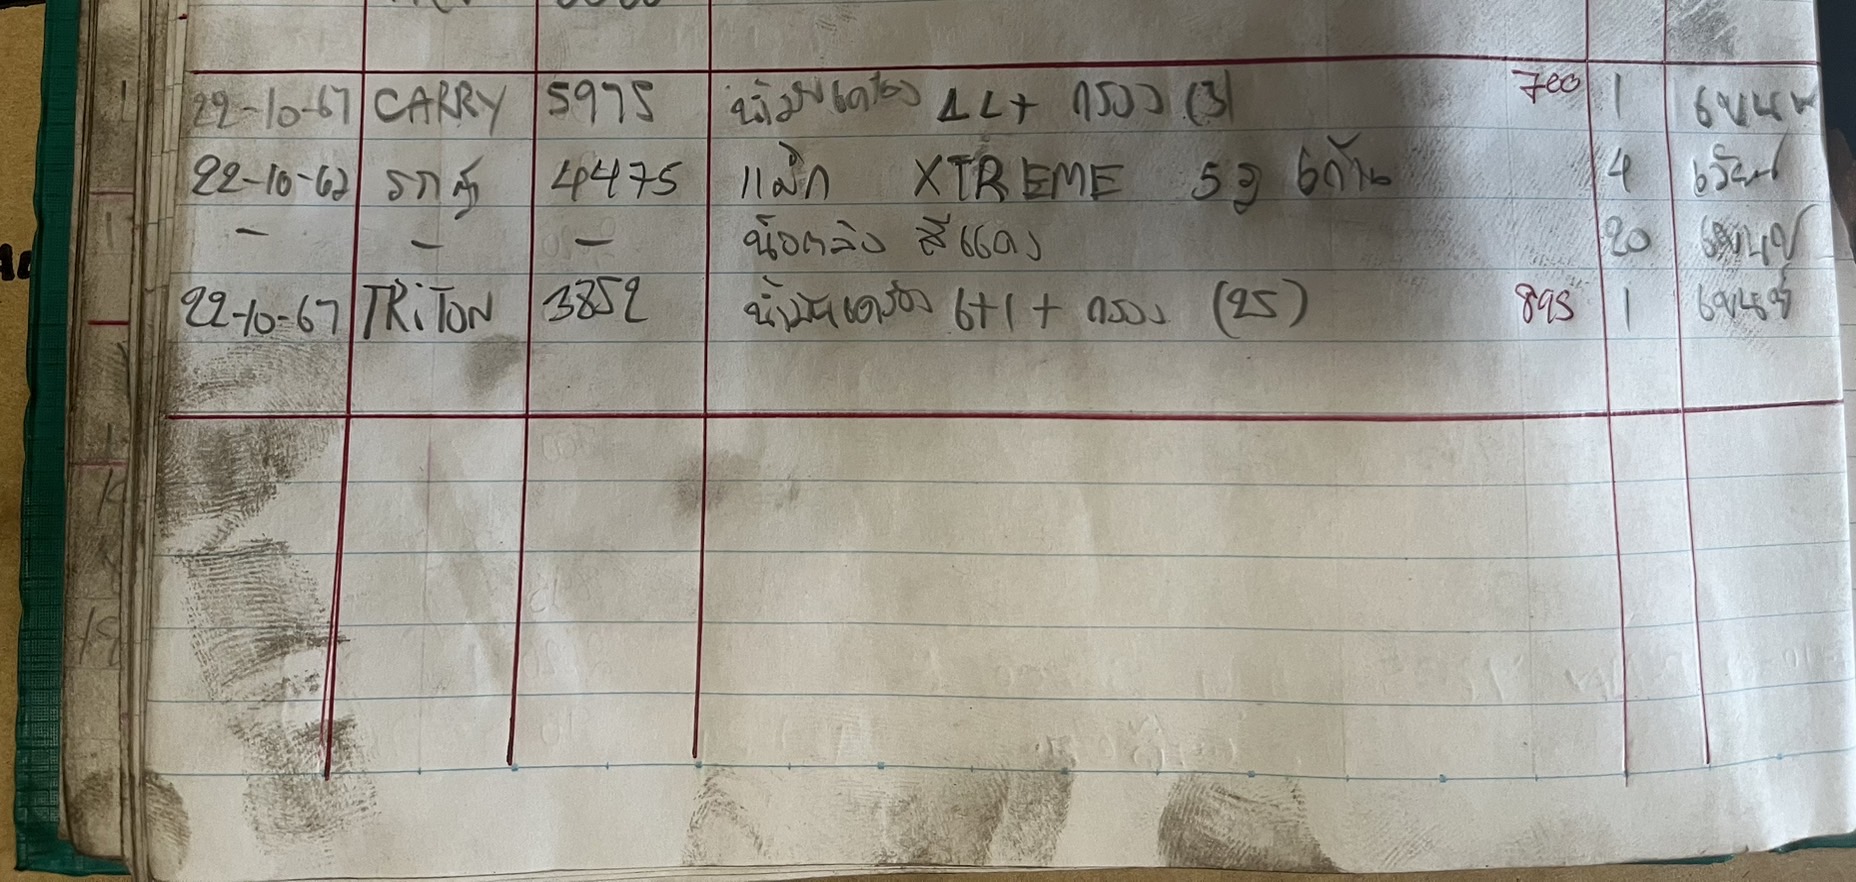 22-10-67 CARRY 5975 น้ำมันเครื่อง 4L+ กรอง (3) 700 1
22-10-67 รถตู้ 4475 แม็ก XTREME 5รู 6ก้าน 4
- - - น๊อตล้อ สีแดง 20
22-10-67 TRiTON 3852 น้ำมันเครื่อง 6+1 + กรอง (25) 895 1